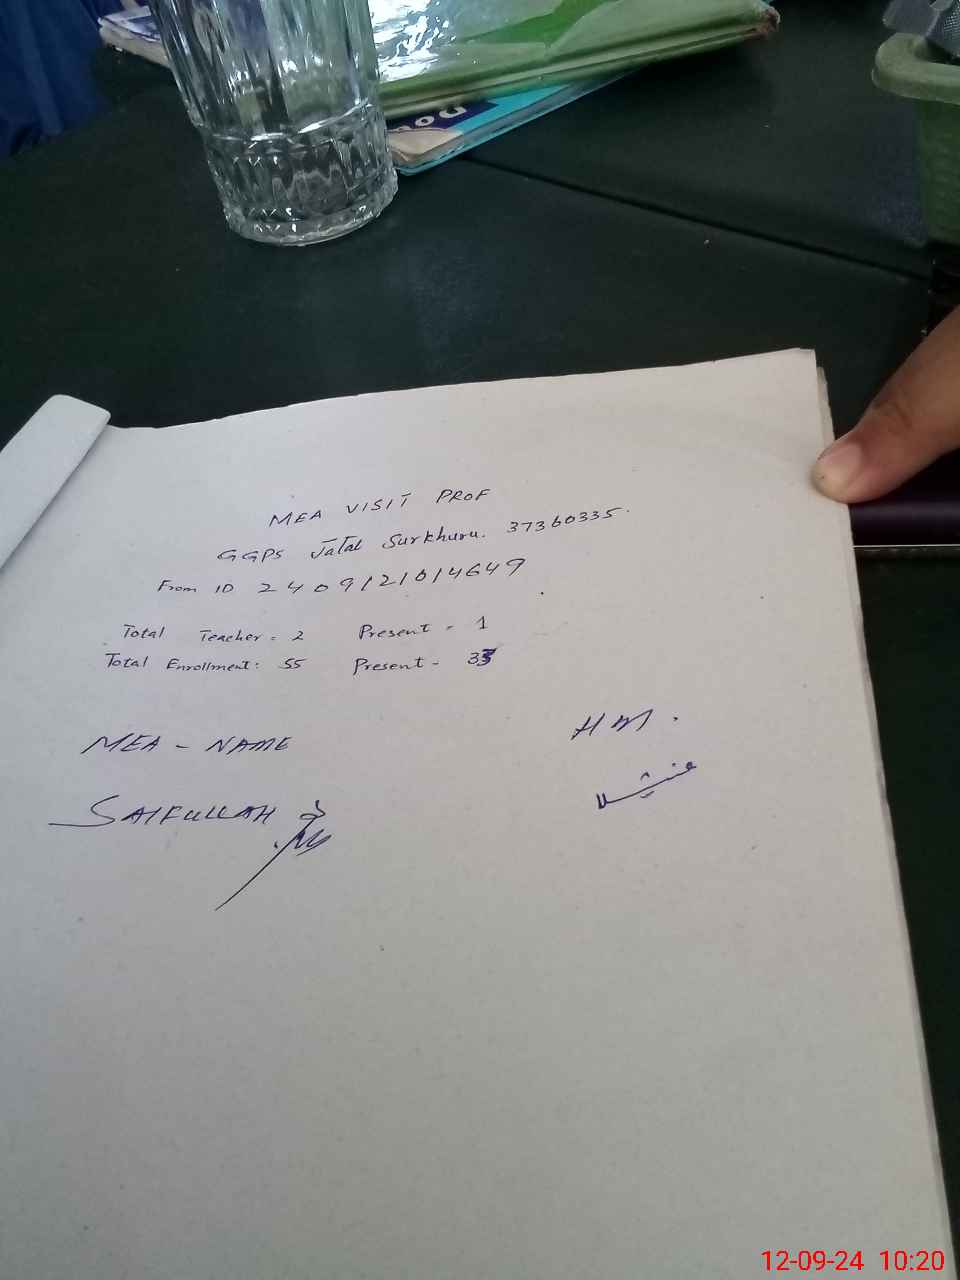 Dor
MEA VISIT PROF
GGPS Jatal Surkhuru. 37360335.
From ID 2409121014649
Total Teacher = 2 Present = 1
Total Enrollment: 55 Present -
MEA - NAME
HM.
SAIFULLAH
12-09-24 10:20